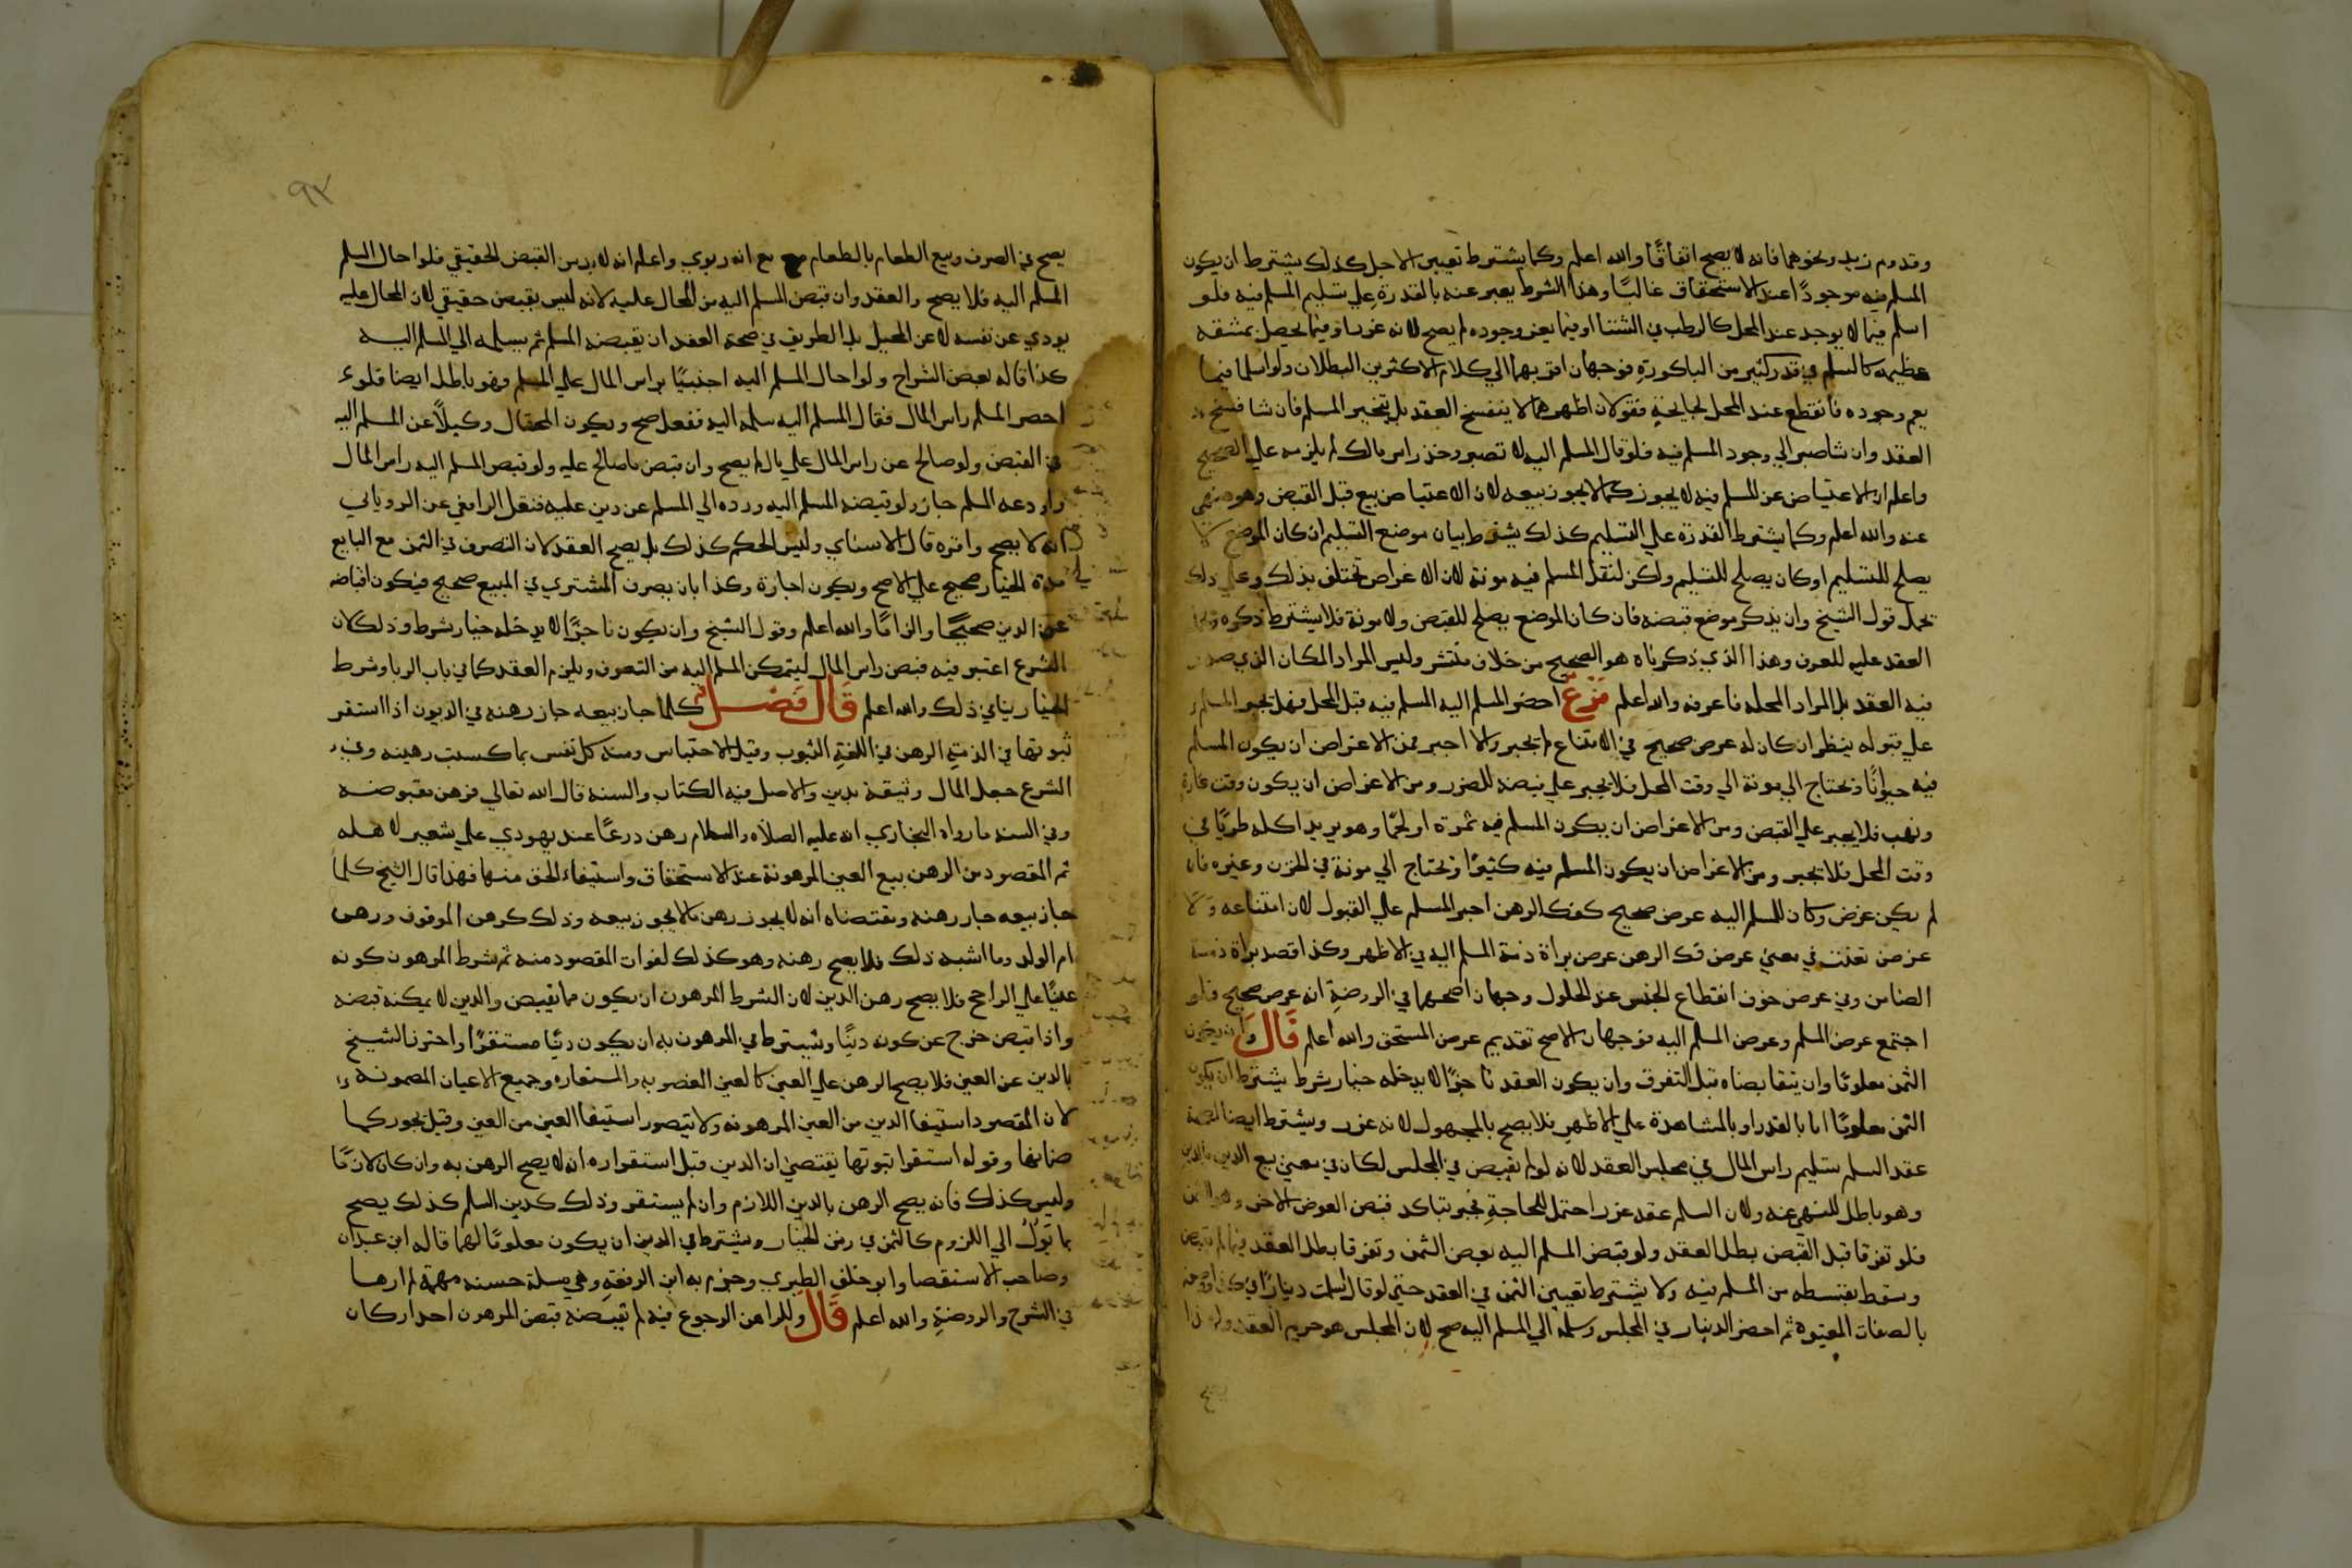 وقدوم زيد ونحوهما فانه لا يصح اتفاقًا والله اعلم وكما يشترط تعيين الاجل كذلك يشترط ان يكون
المسلم فيه موجودًا عند الاستحقاق غالبًا وهذا الشرط يعبر عنه بالقدرة علي تسليم المسلم فيه فلو
اسلم فيما لا يوجد عند المحل كالرطب في الشتا او فيما يعز وجوده لم يصح لانه غرر او فيما يحصل بمشقه
عظيمه كالسلم في قدر كثير من الباكورة فوجهان اقربهما الي كلام الاكثرين البطلان ولو اسلم فيما
يعم وجوده فانقطع عند المحل لجايحة فقولان اظهرهما لا ينفسخ العقد بل يتخير المسلم فان شا فسخ
العقد وان شا صبر الي وجود المسلم فيه فلو قال المسلم اليه لا تصبر وخذ راس مالك لم يلزمه علي الصحيح
واعلم ان الاعتياض عن المسلم فيه لا يجوز كما لا يجوز بيعه لان الاعتياض بيع قبل القبض وهو منهي
عنه والله اعلم وكما يشترط القدرة علي التسليم كذلك يشترط بيان موضع التسليم ان كان الموضع لا
يصلح للتسليم او كان يصلح للتسليم ولكن لنقل المسلم فيه مونة لان الاغراض تختلف بذلك وعلي ذلك
يحمل قول الشيخ وان يذكر موضع قبضه فان كان الموضع يصلح للقبض ولا مونة فلا يشترط ذكره
العقد عليه للعرف وهذا الذي ذكرناه هو الصحيح من خلاف منتشر وليس المراد المكان الذي صدر
فيه العقد بل المراد المحله فاعرفه والله اعلم فرع احضر المسلم اليه المسلم فيه قبل المحل فهل يجبر المسلم
علي قبوله ينظر ان كان له غرض صحيح في الامتناع لم يجبر والا اجبر فمن الاغراض ان يكون المسلم
فيه حيوانًا ويحتاج الي مونة الي وقت المحل فلا يجبر علي قبضه للضرر ومن الاغراض ان يكون وقت غارة
ونهب فلا يجبر علي القبض ومن الاغراض ان يكون المسلم فيه ثمرة او لحمًا وهو يريد اكله طريًا في
وقت المحل فلا يجبر ومن الاغراض ان يكون المسلم فيه كثيرًا ويحتاج الي مونة في الخزن وغيره فان
لم يكن غرض وكان للمسلم اليه غرض صحيح كفك الرهن اجبر المسلم علي القبول لان امتناعه ولا
غرض تعنت في معني غرض فك الرهن غرض براة ذمة المسلم اليه في الاظهر وكذا قصد براة ذمة
الضامن وفي غرض خوف انقطاع الجنس عند الحلول وجهان اصحهما في الروضة انه غرض صحيح فلو
اجتمع غرض المسلم وغرض المسلم اليه فوجهان الاصح تقديم غرض المستحق والله اعلم قال وان يكون
الثمن معلومًا وان يتقابضاه قبل التفرق وان يكون العقد ناجزًا لا يدخله خيار شرط يشترط ان يكون
الثمن معلومًا اما بالقدر او بالمشاهدة علي الاظهر فلا يصح بالمجهول لانه غرر ويشترط ايضا لصحة
عقد السلم تسليم راس المال في مجلس العقد لانه لو لم يقبض في المجلس لكان في معني بيع الدين بالدين
وهو باطل للنهي عنه ولان السلم عقد غرر احتمل للحاجة فجبر بتاكد قبض العوض الاخر وهو الثمن
فلو تفرقا قبل القبض بطل العقد ولو قبض المسلم اليه بعض الثمن وتفرقا بطل العقد فيما لم يقبض
وسقط بقسطه من المسلم فيه ولا يشترط تعيين الثمن في العقد حتي لو قال اسلمت دينارًا في كذا
بالصفات المعتبرة ثم احضر الدينار في المجلس وسلمه الي المسلم اليه صح لان المجلس هو حريم العقد ولهذا
٩٣
يصح في الصرف وبيع الطعام بالطعام مع انه ربوي واعلم انه لا بد من القبض الحقيقي فلو احال المسلم
المسلم اليه فلا يصح والعقد وان قبض المسلم اليه من المحال عليه لانه ليس بقبض حقيقي لان المحال عليه
يودي عن نفسه لا عن المحيل بل الطريق في صحة العقد ان يقبضه المسلم ثم يسلمه الي المسلم اليه
كذا قاله بعض الشراح ولو احال المسلم اليه اجنبيًا براس المال علي المسلم فهو باطل ايضا فلو
احضر المسلم راس المال فقال المسلم اليه سلمه اليه ففعل صح ويكون المحتال وكيلًا عن المسلم اليه
في القبض ولو صالح عن راس المال علي مال لم يصح وان قبض ما صالح عليه ولو قبض المسلم اليه راس المال
واودعه المسلم جاز ولو قبضه المسلم اليه ورده الي المسلم عن دين عليه فنقل الرافعي عن الروياني
انه لا يصح واقره قال الاسناي وليس الحكم كذلك بل يصح العقد لان التصرف في الثمن مع البايع
مدة الخيار صحيح علي الاصح ويكون اجازة وكذا بان يصرف المشتري في المبيع صحيح فيكون اقباضه
عن الدين صحيحًا والزامًا والله اعلم وقول الشيخ وان يكون ناجزًا لا يدخله خيار شرط وذلك لان
الشرع اعتبر فيه قبض راس المال ليتمكن المسلم اليه من التصرف ويلزم العقد كما في باب الربا وشرط
الخيار ينافي ذلك والله اعلم قال فصل كلما جاز بيعه جاز رهنه في الديون اذا استقر
ثبوتها في الذمة الرهن في اللغة الثبوت وقيل الاحتباس ومنه كل نفس بما كسبت رهينه وفي
الشرع جعل المال وثيقة بدين والاصل فيه الكتاب والسنه قال الله تعالي فرهن مقبوضه
وفي السنه ما رواه البخاري انه عليه الصلاه والسلام رهن درعًا عند يهودي علي شعير لاهله
ثم المقصود من الرهن بيع العين المرهونة عند الاستحقاق واستيفاء الحق منها فهذا قال الشيخ كلما
جاز بيعه جاز رهنه ومقتضاه انه لا يجوز رهن ما لا يجوز بيعه وذلك كرهن الموقوف ورهن
ام الولد وما اشبه ذلك فلا يصح رهنه وهو كذلك لفوات المقصود منه ثم شرط المرهون كونه
عينًا علي الراجح فلا يصح رهن الدين لان الشرط المرهون ان يكون مما يقبض والدين لا يمكنه قبضه
واذا قبض خرج عن كونه دينًا ويشترط في المرهون به ان يكون دينًا مستقرًا واحترز الشيخ
بالدين عن العين فلا يصح الرهن علي العين كالعين المغصوبه والمستعاره وجميع الاعيان المضمونه
لان المقصود استيفا الدين من العين المرهونه ولا يتصور استيفا العين من العين وقيل يجوز كما
ضمانها وقوله استقرا ثبوتها يقتضي ان الدين قبل استقراره انه لا يصح الرهن به وان كان لازمًا
وليس كذلك فانه يصح الرهن بالدين اللازم وان لم يستقر وذلك كدين السلم كذلك يصح
بما تؤل الي اللزوم كالثمن في زمن الخيار ويشترط في الدين ان يكون معلومًا لهما قاله ابن عبدان
وصاحب الاستقصا وابو خلف الطبري وجزم به ابن الرفعة وهي مسلة حسنه مهمة لم ارها
في الشرح والروضة والله اعلم قال وللراهن الرجوع فيه ما لم يقبضه قبض المرهون احد اركان